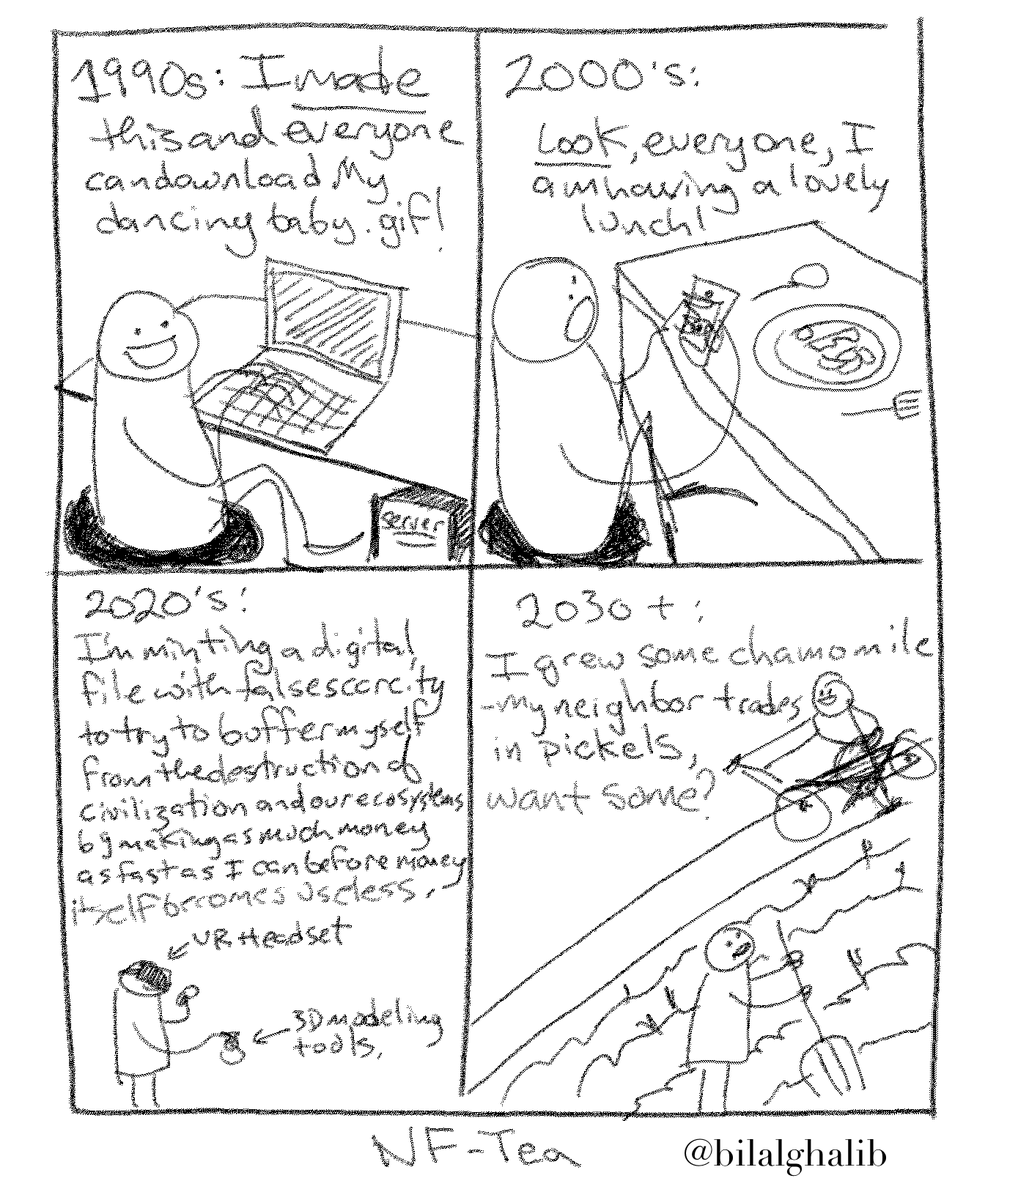 1990s: I made
this and everyone
can download My
dancing baby.gif!
server
2000's:
Look, everyone, I
am having a lovely
lunch!
2020's:
I'm minting a digital
file with false scarcity
to try to buffer myself
from the destruction of
civilization and our ecosystems
by making as much money
as fast as I can before money
itself becomes useless.
VR Headset
3D modeling
tools.
2030+:
I grew some chamomile
-my neighbor trades
in pickels,
want some?
NF-Tea
@bilalghalib